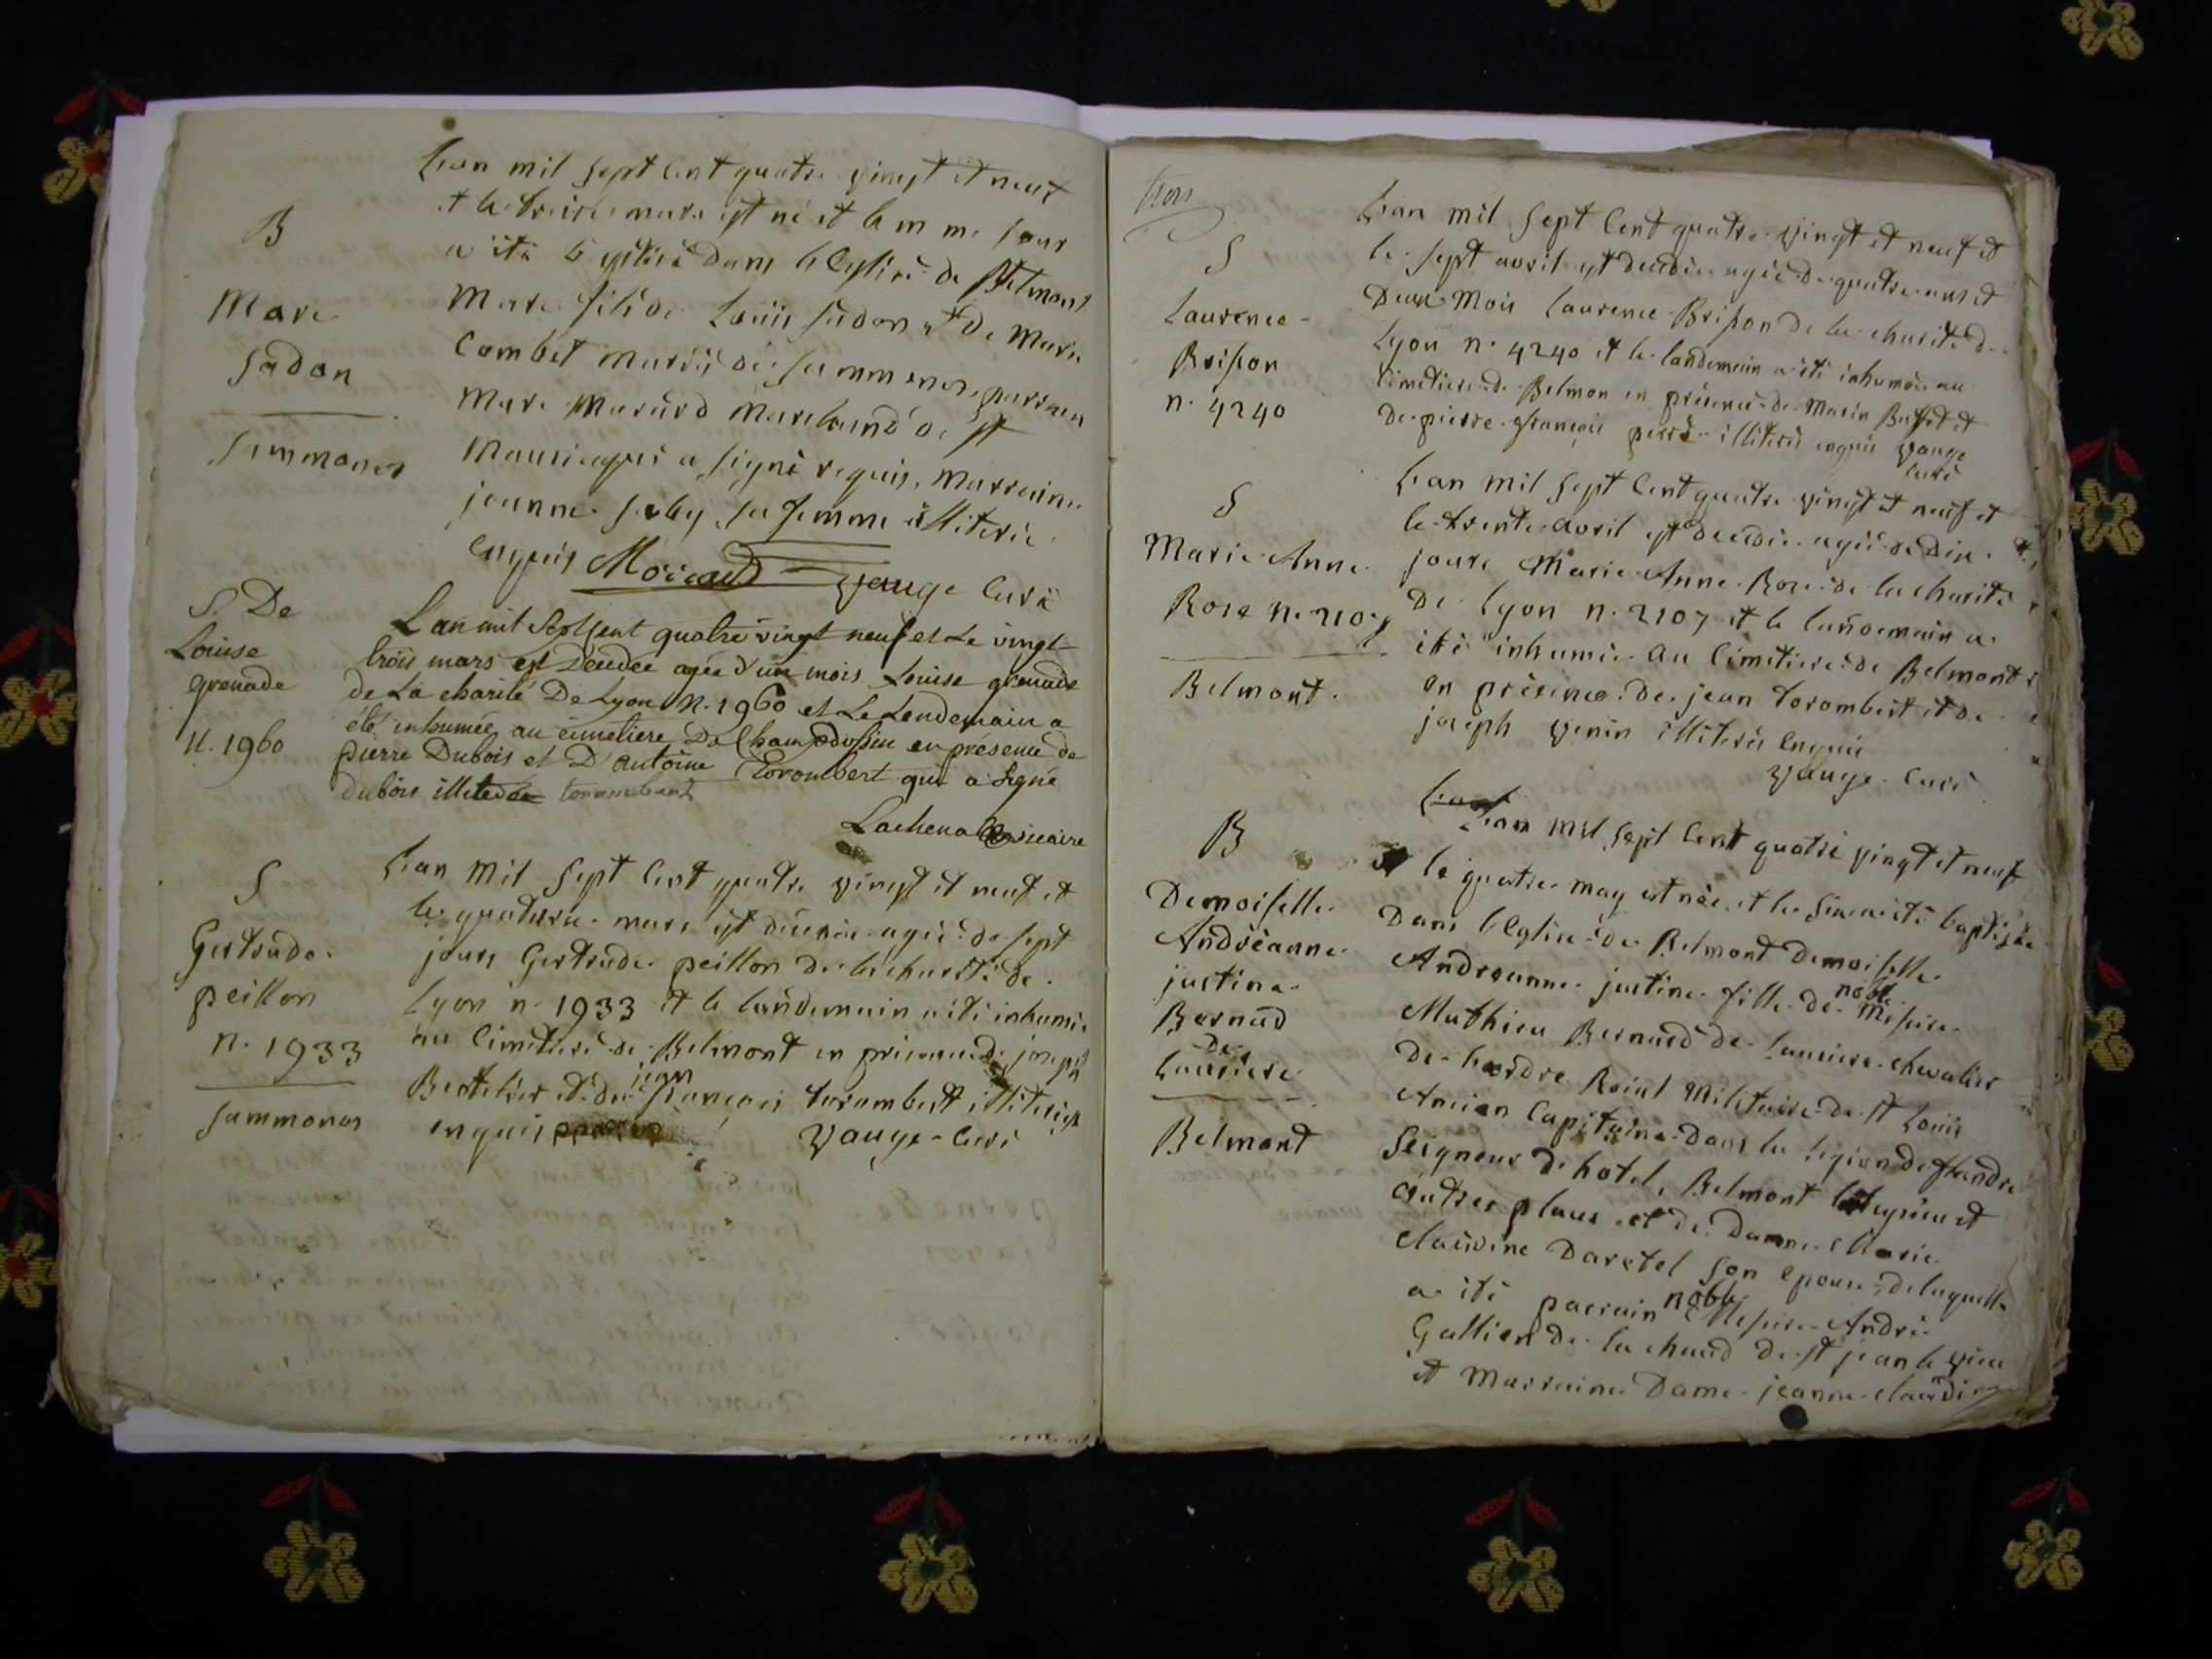 L'an mil sept cent quatre vingt et neuf
et le treize mars est né et le mme jour
B
a été b
dans l'Eglise de Belmont
Marc
Marc fils de Louis Jadon et de Marie
Jadon
Combet mariés de Jammonos parrain
Marc Marand Marchand de st
Jammonos
a signé requis, Marraine
jeanne Joly sa femme illiterée
enquis Morand Vauge Curé
S. De
Louise
grenade
n. 1960
L'an mil Sept Cent quatre vingt neuf et Le vingt
trois mars est Decedée agée d'un mois Louise grenade
de La charité De Lyon N. 1960 et Le Lendemain a
été inhumée au cimetiere De Champdossin en présence de
pierre Dubois et D'antoine Torombert qui a signé
dubois illiteré torombert
Lachenal vicaire
S
Gertrude
peillon
n. 1933
Jammonos
L'an mil sept cent quatre vingt et neuf et
le quatorze mars est décédée agée de sept
jours Gertrude peillon de la charité de
Lyon n. 1933 et le landemain a été inhumée
au Cimetiere de Belmont en présence de joseph
Bertelier et de jean françois torombert illiterés
enquis Vauge Curé
S
Laurence
Brison
n. 4240
L'an mil sept cent quatre vingt et neuf et
le sept avril est decédée agée de quatre ans et
Deux Mois Laurence Brison de la charité de
Lyon n. 4240 et le landemain a été inhumée au
Cimetiere de Belmon en présence de Marin Buffet et
De pierre françois perré illiterés enquis Vauge
curé
S
Marie Anne
Rose n. 2107
Belmont.
L'an mil sept cent quatre vingt et neuf et
le trente avril est decédée agée de dix
jours Marie Anne Rose de la charité
De Lyon n. 2107 et le landemain a
été inhumée au Cimetiere de Belmont
en présence de jean torombert et de
joseph venin illiterés enquis
Vauge Curé
B
Demoiselle
Andréanne
justine
Bernad
De
Lauriere
Belmont
L'an mil sept cent quatre vingt et neuf
et le quatre may est née et le six a été baptisée
Dans l'Eglise de Belmont Demoiselle
Andreanne justine fille de noble Messire
Mathieu Bernad de Lauriere chevalier
De l'ordre Roial Militaire de st Louis
Ancien Capitaine dans la legion de flandre
Seigneur d'hotel, Belmont et
autres places et de Dame Marie
claudine Daretel son epouse de laquelle
a été parrain noble Messire André
Gallien de la chaud de st jean le vieu
et Marraine Dame jeanne claudine